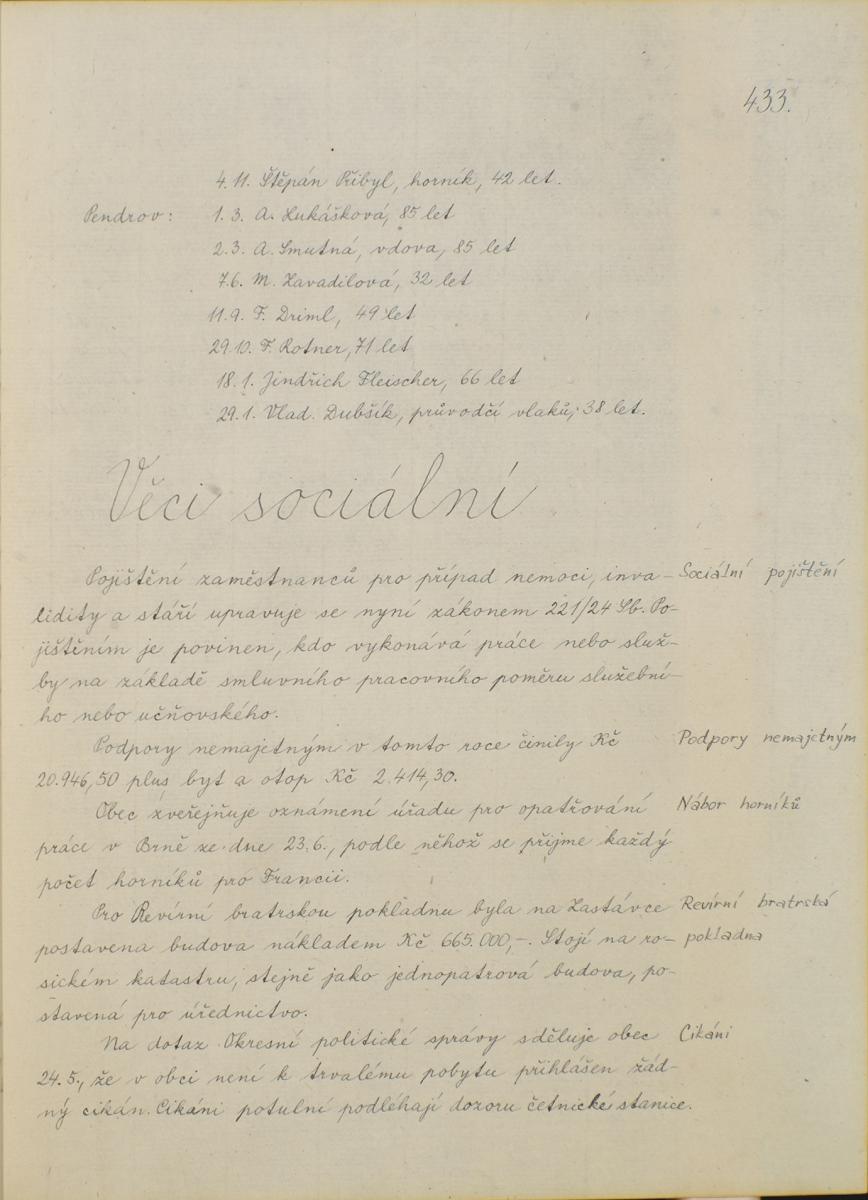 433.
4. 11. Štěpán Přibyl, horník, 42 let.
Pendrov: 1. 3. A. Lukášková, 85 let
2. 3. A. Smutná, vdova, 85 let
7.6. M. Zavadilová, 32 let
11. 9. F. Driml, 49 let
29. 10. F. Rotner, 71 let
18. 1. Jindřich Fleischer, 66 let
29. 1. Vlad. Dubšík, průvodčí vlaků, 38 let.
Věci sociální
Pojištění zaměstnanců pro případ nemoci, inva- Sociální pojištění
lidity a stáří upravuje se nyní zákonem 221/24 Sb. Po-
jištěním je povinen, kdo vykonává práce nebo služ-
by na základě smluvního pracovního poměru služební-
ho nebo učňovského.
Podpory nemajetným v tomto roce činily Kč Podpory nemajetným
20.946,50 plus byt a otop Kč 2.414,30.
Obec zveřejňuje oznámení úřadu pro opatřování Nábor horníků
práce v Brně ze dne 23.6., podle něhož se přijme každý
počet horníků pro Francii.
Pro Revírní bratrskou pokladnu byla na Zastávce Revírní bratrská
postavena budova nákladem Kč 665.000,-. Stojí na ro- pokladna
sickém katastru, stejně jako jednopatrová budova, po-
stavená pro úřednictvo.
Na dotaz Okresní politické správy sděluje obec Cikáni
24.5., že v obci není k trvalému pobytu přihlášen žád-
ný cikán. Cikáni potulní podléhají dozoru četnické stanice.